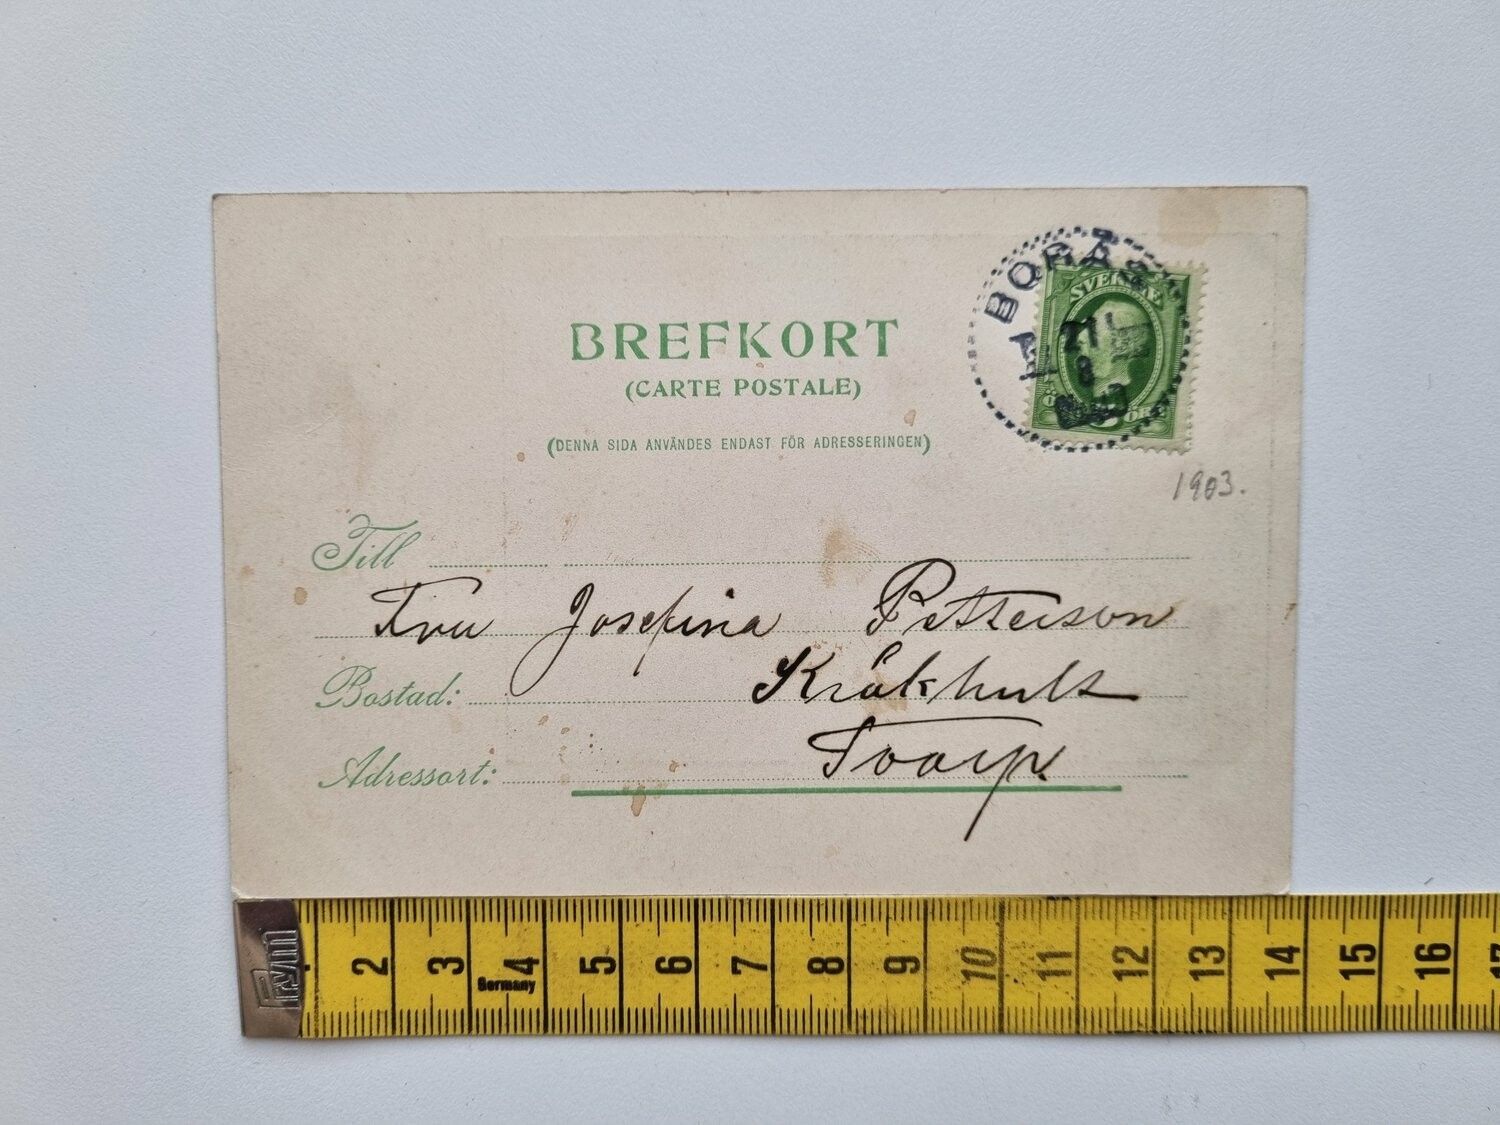 BREFKORT
(CARTE POSTALE)
(DENNA SIDA ANVÄNDES ENDAST FÖR ADRESSERINGEN)
BORÅS
SVERIGE
21
8
ÖRE
1903.
Till
Fru Josefina Petterson
Bostad: Kråkhult
Adressort: Toarp.
prym
2 3 4 5 6 7 8 9 10 11 12 13 14 15 16 17
Germany